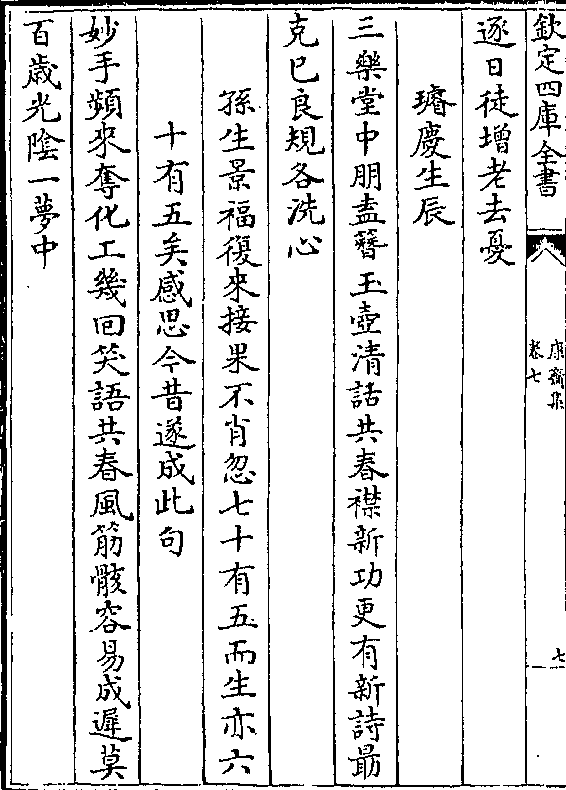 欽定四庫全書
康齋集
卷七
七
逐日徒增老去憂
璿慶生辰
三樂堂中朋盍簪玉壺清話共春襟新功更有新詩最
克已良規各洗心
孫生景福復來接果不肖忽七十有五而生亦六
十有五矣感思今昔遂成此句
妙手頻來奪化工幾回笑語共春風筋骸容易成遲莫
百歲光陰一夢中